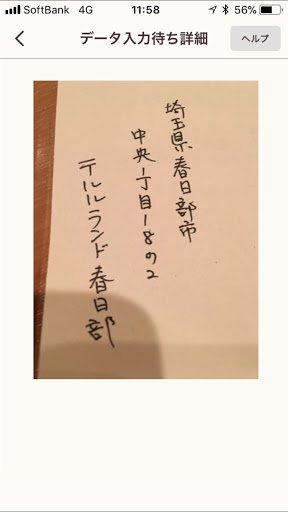 SoftBank 4G 11:58 56%
データ入力待ち詳細
ヘルプ
埼玉県春日部市
中央1丁目18の2
テルルランド春日部